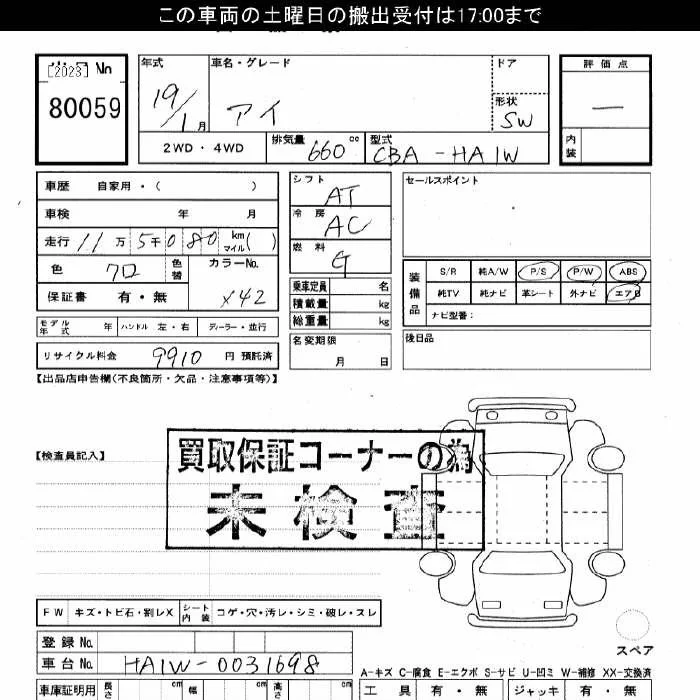 この車両の土曜日の搬出受付は17:00まで
[2023] No
80059
年式 車名・グレード ドア 評価点
19/1月 アイ 形状 SW —
内装
2WD・4WD 排気量 660 cc 型式 CBA-HA1W
車歴 自家用・( )
車検 年 月
走行 11万5千080 km マイル( )
色 クロ 色替 カラーNo. X42
保証書 有・無
モデル年式 年 ハンドル 左・右 ディーラー・並行
リサイクル料金 9910 円 預託済
シフト AT
冷房 AC
燃料 G
乗車定員 名
積載量 kg
総重量 kg
名変期限 月 日
セールスポイント
装備品 S/R 純A/W P/S P/W ABS
純TV 純ナビ 革シート 外ナビ エアB
ナビ型番:
後日品
【出品店申告欄(不良箇所・欠品・注意事項等)】
【検査員記入】
買取保証コーナーの為
未検査
FW キズ・トビ石・割レX シート内装 コゲ・穴・汚レ・シミ・破レ・スレ
登録No.
車台No. HA1W-0031698
車庫証明用 長さ cm 幅 cm 高さ cm
スペア
A-キズ C-腐食 E-エクボ S-サビ U-凹ミ W-補修 XX-交換済
工具 有・無 ジャッキ 有・無